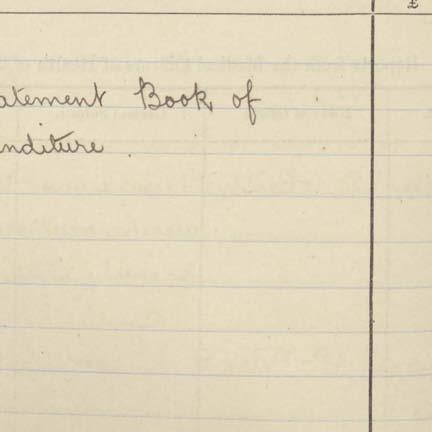 £
atement Book of
nditure